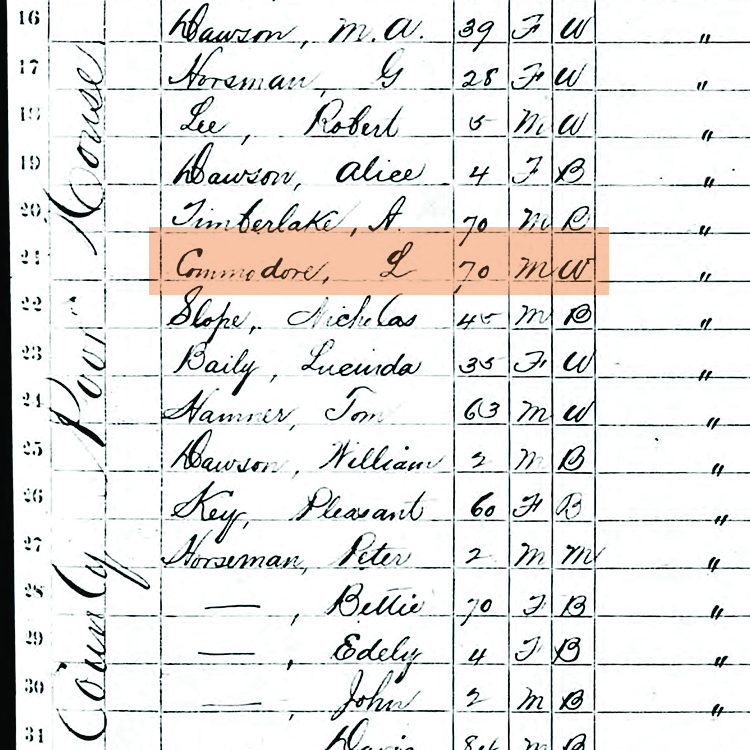 County Poor House
16 Dawson, M. A. 39 F W "
17 Norsman, G 28 F W "
18 Lee, Robert 5 M W "
19 Dawson, Alice 4 F B "
20 Timberlake, A. 70 M B "
21 Commodore, L 70 M W "
22 Slope, Nicholas 45 M B "
23 Baily, Lucinda 35 F W "
24 Hamner, Tom 63 M W "
25 Dawson, William 2 M B "
26 Key, Pleasant 60 F B "
27 Horseman, Peter 2 M M "
28 —, Bettie 70 F B "
29 —, Edely 4 F B "
30 —, John 2 M B "
31 Davis M B